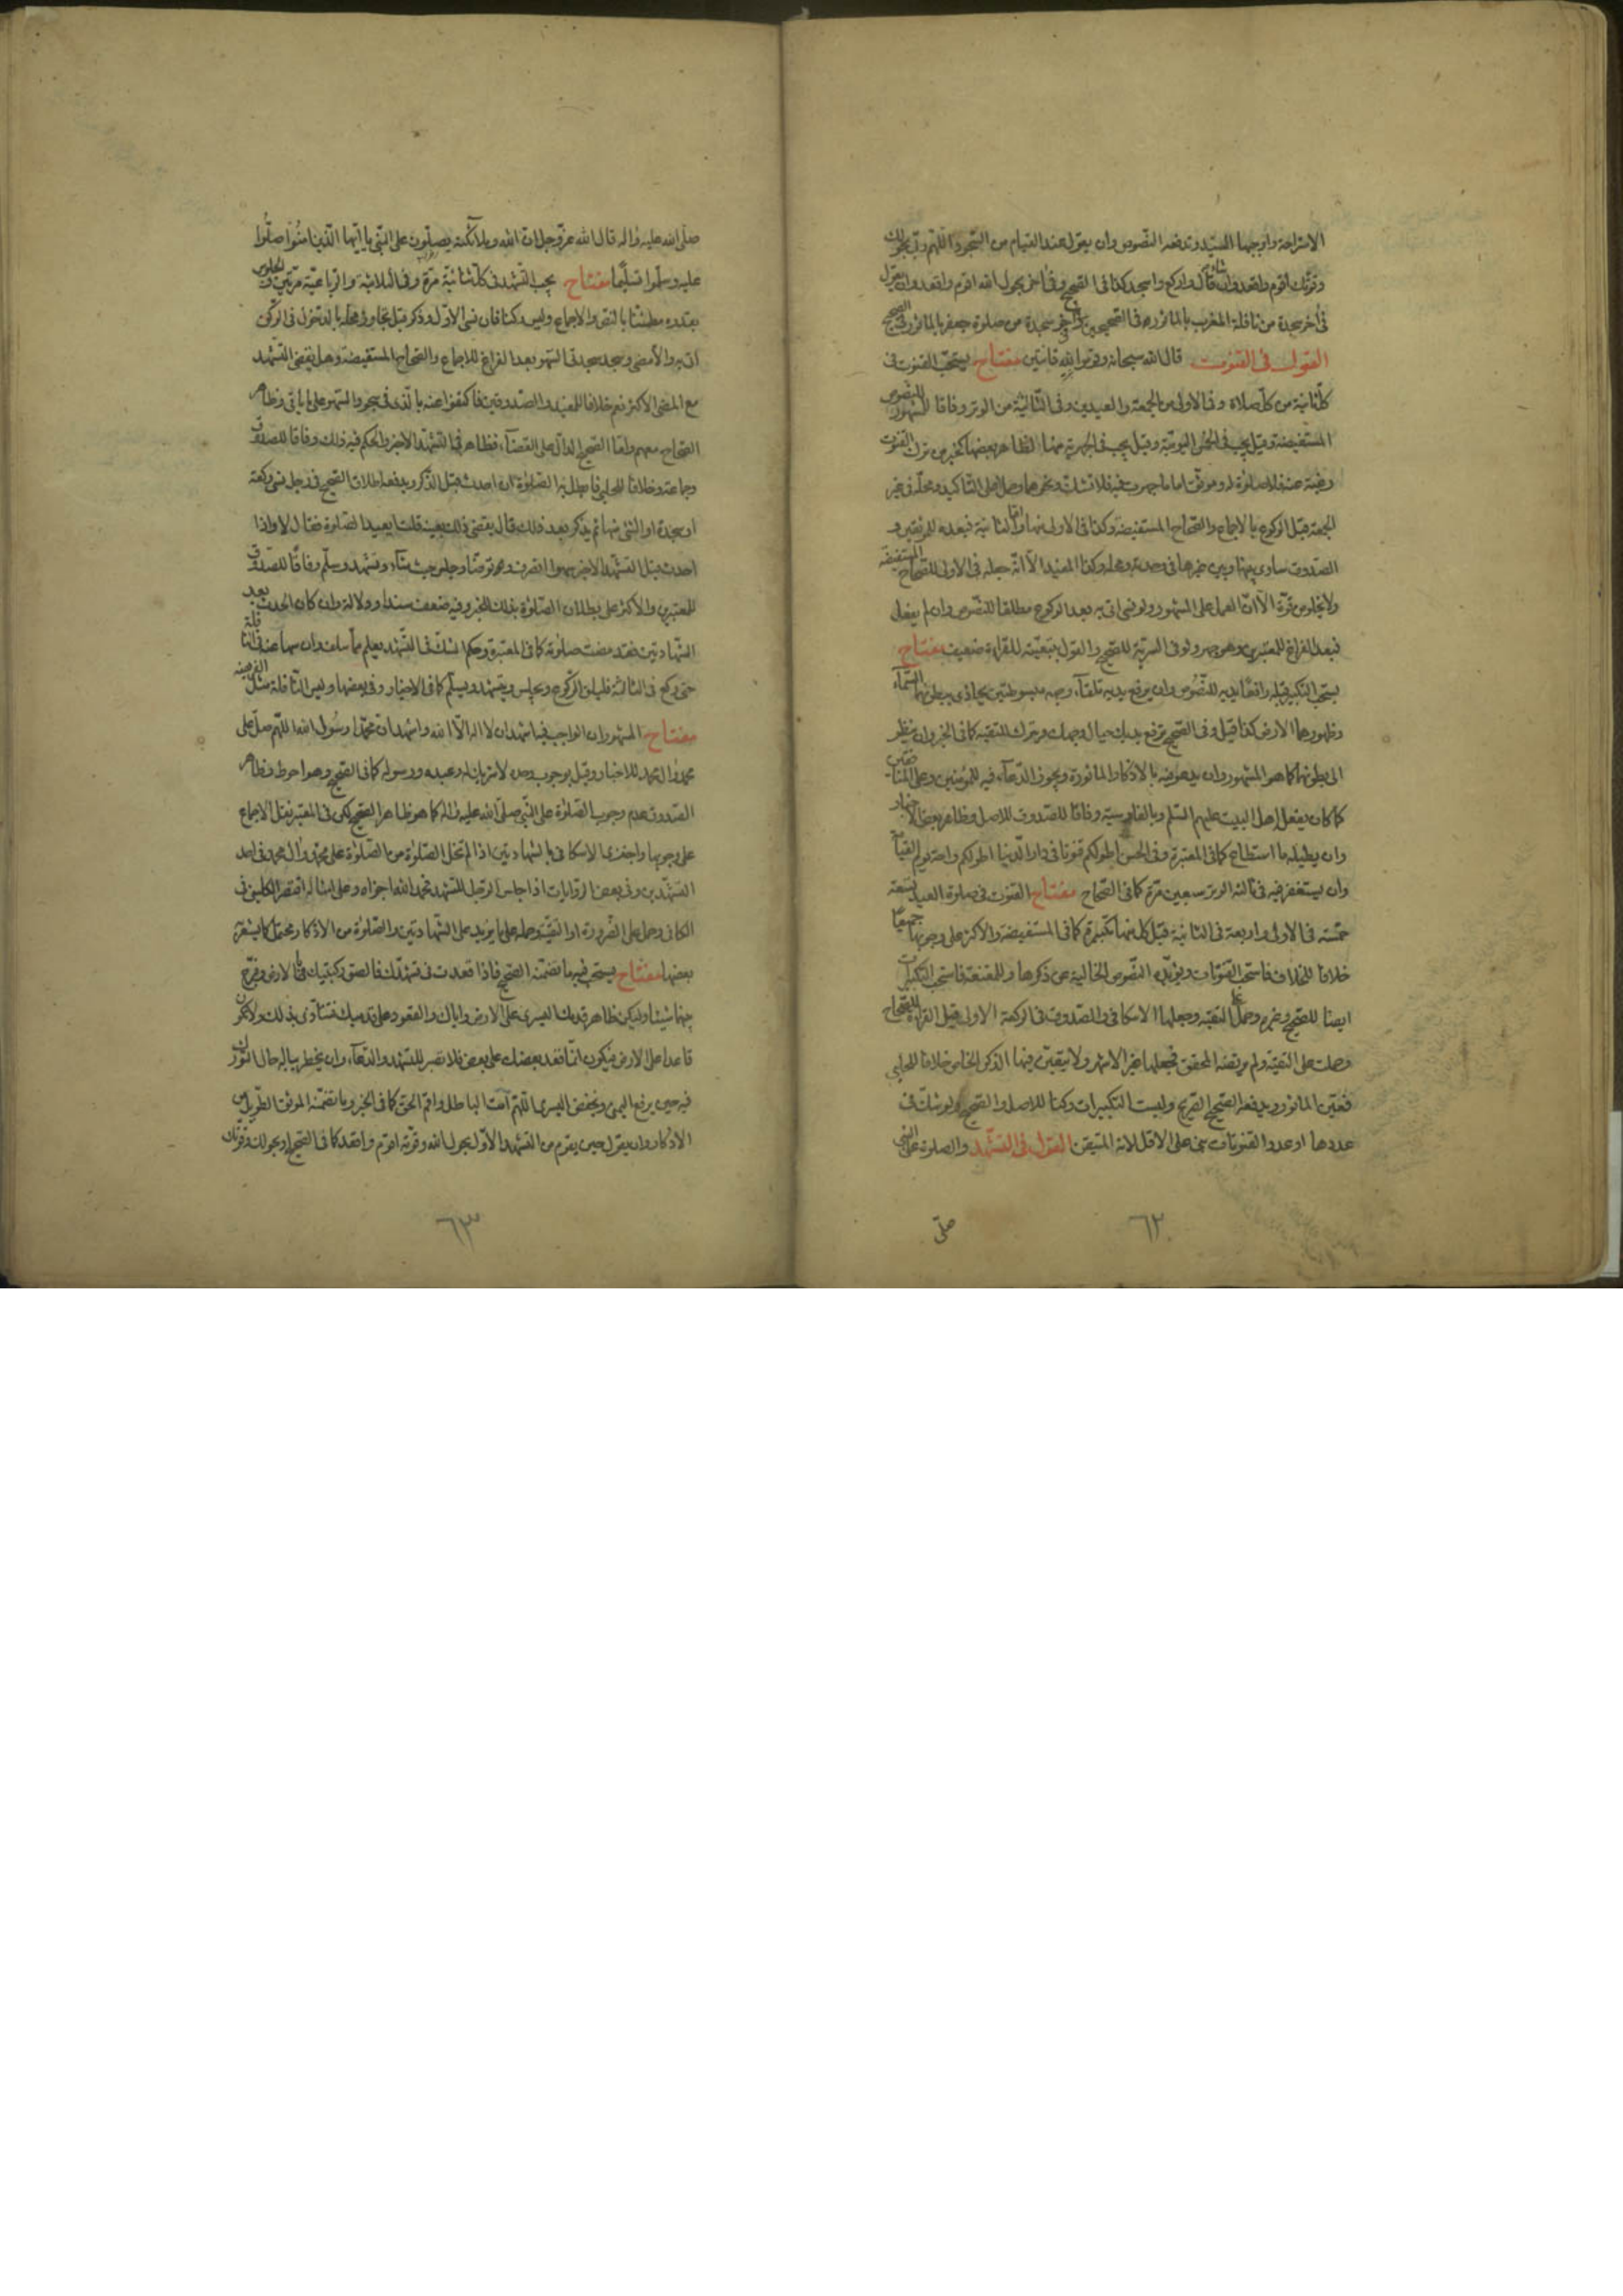 الاستراحة واوجبها السيد وتدفعه النصوص وان يقول عند القيام من السجود اللهم ربي بحولك
وقوتك اقوم واقعد وان شاء قال واركع واسجد كذا في الصحيح وفي اخر بحول الله اقوم واقعد وان يقول
في اخر سجدة من نافلة المغرب بالماثور في الصحيحين وفي اخر سجدة من صلوة جعفر بالماثور في الصحيح
القول في القنوت قال الله سبحانه وقوموا لله قانتين مفتاح يستحب القنوت في
كل ثانية من كل صلاة وفي الاولى من الجمعة والعيدين وفي الثالثة من الوتر وفاقا للمشهور للنصوص
المستفيضة وقيل يجب في الخمس اليومية وقيل يجب في الجهرية منها لظاهر بعضها كخبر من ترك القنوت
رغبة عنه فلا صلوة له وموثق اما ما جهرت فيه فلا تشك ونحوهما وحملا على التاكيد ومحله في غير
الجمعة قبل الركوع بالاجماع والصحاح المستفيضة وكذا في الاولى منها واما الثانية فبعده للموثقين و
الصدوق ساوى بينها وبين غيرها في وحدته ومحله وكذا المفيد الا انه جعله في الاولى للصحاح المستفيضة
ولا يخلو من قوة الا ان العمل على المشهور ولو نسي اتى به بعد الركوع مطلقا للنصوص وان لم يفعل
فبعد الفراغ للمعتبرين وهو جهر ولو في السرية للصحيح والقول بتبعيته للقراءة ضعيف مفتاح
يستحب التكبير قبله رافعا يديه للنصوص وان يرفع يديه تلقاء وجهه مبسوطتين يحاذي ببطونهما السماء
وظهورهما الارض كذا قيل وفي الصحيح ترفع يديك حيال وجهك ويترك للتقية كما في الخبر وان ينظر
الى بطونهما كما هو المشهور وان يدعو فيه بالاذكار الماثورة ويجوز الدعاء فيه للمؤمنين وعلى المنافقين
كما كان يفعل اهل البيت عليهم السلم وبالفارسية وفاقا للصدوق للاصل وظاهر بعض الاخبار
وان يطيله ما استطاع كما في المعتبرة وفي الحسن اطولكم قنوتا في دار الدنيا اطولكم راحة يوم القيامة
وان يستغفر فيه في ثالثة الوتر سبعين مرة كما في الصحاح مفتاح القنوت في صلوة العيد تسعة
خمسة في الاولى واربعة في الثانية قبل كل منها تكبيرة كما في المستفيضة والاكثر على وجوبها جميعا
خلافا للخلاف فاستحب القنوتات ويؤيده النصوص الخالية عن ذكرها وللمقنعة فاستحب التكبيرات
ايضا للصحيح وغيره وحمل على التقية وجعلها الاسكافي والصدوق في الركعة الاولى قبل القراءة للصحاح
وحملت على التقية ولم يرتضه المحقق فجعلها خير الاشهر ولا يتعين فيها الذكر الخاص خلافا للحلبي
فعين الماثور ويدفعه الصحيح الصريح وليست التكبيرات ركنا للاصل والصحيح ولو شك في
عددها او عدد القنوتات بنى على الاقل لانه المتيقن القول في التشهد والصلوة على النبي
٦٢
صلى
صلى الله عليه واله قال الله عز وجل ان الله وملائكته يصلون على النبي يا ايها الذين امنوا صلوا
عليه وسلموا تسليما مفتاح يجب التشهد في كل ثنائية مرة وفي الثلاثية والرباعية مرتين والجلوس
بقدره مطمئنا بالنص والاجماع وليس ركنا فان نسي الاول وذكر قبل تجاوز محله بالدخول في الركن
اتى به والا مضى وسجد سجدتي السهو بعد الفراغ للاجماع والصحاح المستفيضة وهل يقضى التشهد
مع المضي الاكثر نعم خلافا للمفيد والصدوقين فاكتفوا عنه بالذي في سجود السهو على ما ياتي وظاهر
الصحاح معهم واما الصحيح الدال على القضاء فظاهر في التشهد الاخير والحكم فيه ذلك وفاقا للصدوق
وجماعة وخلافا للحلي فابطل به الصلوة ان احدث قبل الذكر ويدفعه اطلاق الصحيح في رجل نسي ركعة
او سجدة او الشئ منها ثم يذكر بعد ذلك قال يقضي ذلك بعينه قلت ايعيد الصلوة فقال لا واذا
احدث قبل التشهد الاخير سهوا انصرف وتوضا وجلس حيث شاء وتشهد وسلم وفاقا للصدوق
للمعتبرين والاكثر على بطلان الصلوة بذلك للخبر وفيه ضعف سندا ودلالة وان كان الحدث بعد
الشهادتين فقد مضت صلوته كما في المعتبرة وحكم الشك في التشهد يعلم مما سلف وان سها عنه في النافلة
حتى ركع في الثالثة فليلق الركوع ويجلس ويتشهد ويسلم كما في الاخبار وفي بعضها وليس النافلة مثل الفريضة
مفتاح المشهور ان الواجب فيه اشهد ان لا اله الا الله واشهد ان محمدا رسول الله اللهم صل على
محمد وال محمد للاخبار وقيل بوجوب وحده لا شريك له وعبده ورسوله كما في الصحيح وهو احوط وظاهر
الصدوق عدم وجوب الصلوة على النبي صلى الله عليه واله كما هو ظاهر الصحيح لكن في المعتبر نقل الاجماع
على وجوبها واجتزى الاسكافي بالشهادتين اذا لم تخل الصلوة من الصلوة على محمد وال محمد في احد
التشهدين وفي بعض الروايات اذا جلس الرجل للتشهد فحمد الله اجزاه وعلى امثاله اقتصر الكليني في
الكافي وحمل على الضرورة او التقية وحمله على ما يزيد على الشهادتين والصلوة من الاذكار محتمل كما يشعر به
بعضها مفتاح يستحب فيه ما تضمنه الصحيح فاذا قعدت في تشهدك فالصق ركبتيك بالارض وفرج
بينهما شيئا وليكن ظاهر قدمك اليسرى على الارض واياك والقعود على قدميك فتتاذى بذلك ولا تكون
قاعدا على الارض فيكون انما قعد بعضك على بعض فلا تصبر للتشهد والدعاء وان يخطر بباله حال التورك
فيه حين يرفع اليمنى ويخفض اليسرى اللهم امت الباطل واقم الحق كما في الخبر وما تضمنه الموثق الطويل من
الاذكار وان يقول حين يقوم من التشهد الاول بحول الله وقوته اقوم واقعد كما في الصحيح او بحولك وقوتك
٦٣